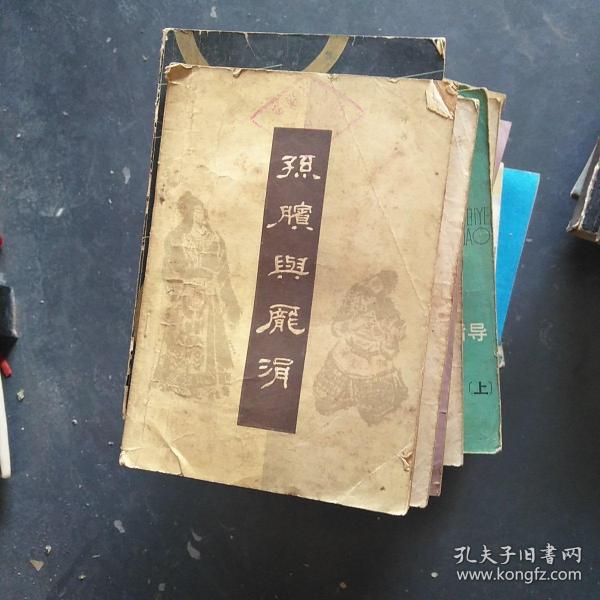 孫臏與龐涓
导
〔上〕
孔夫子旧书网
www.kongfz.com